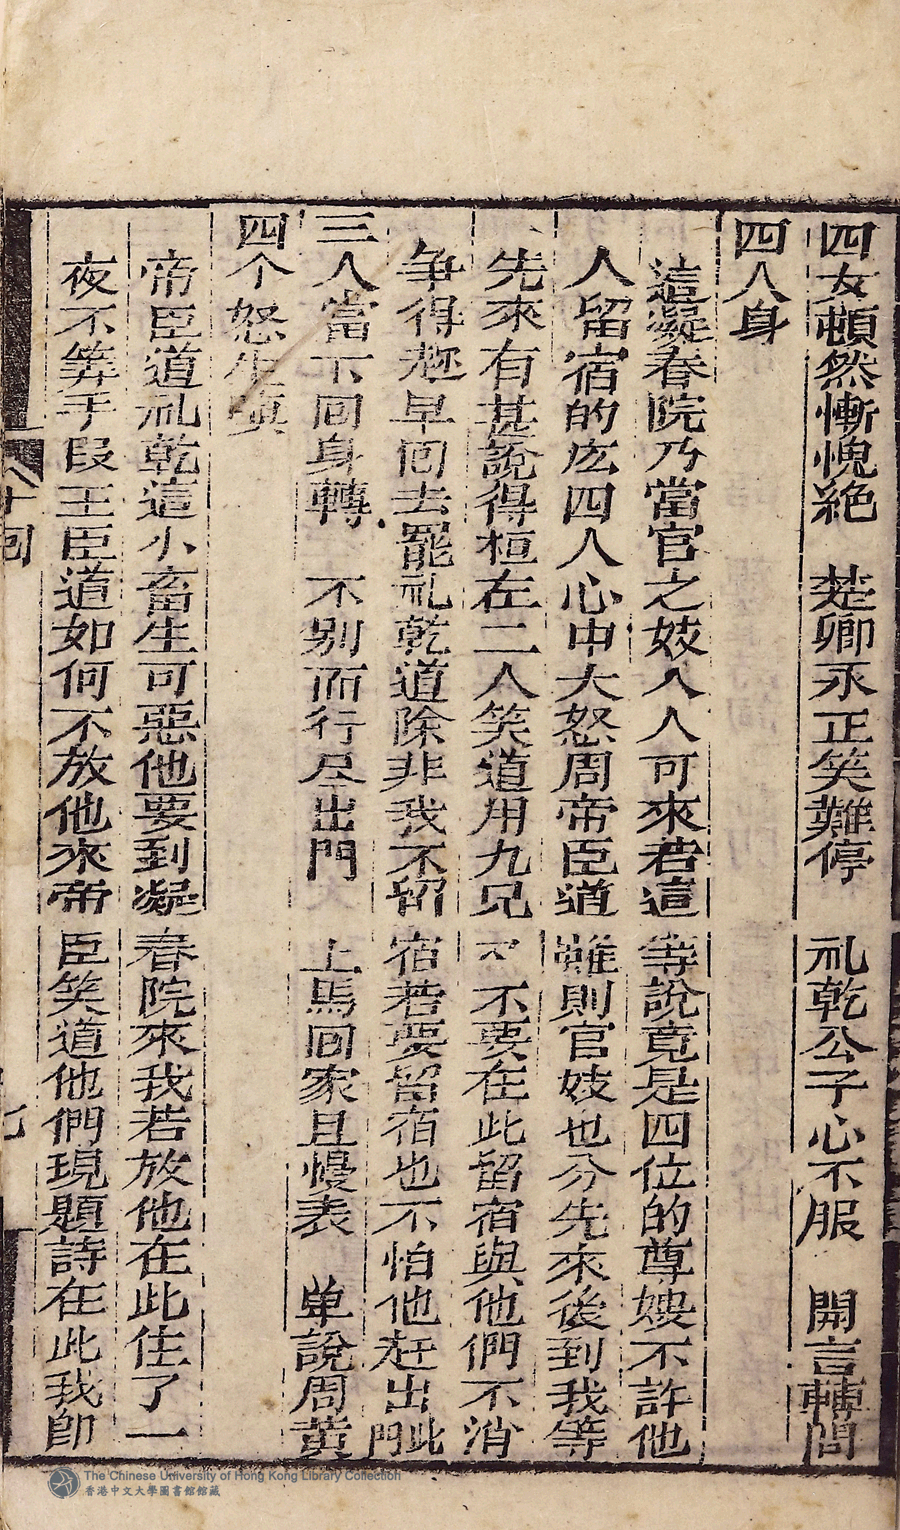 四女頓然慚愧絕　楚卿永正笑難停　礼乾公子心不服　開言轉問
四人身
這凝春院乃當官之妓人人可來若這等說竟是四位的尊嫂不許他
人留宿的広四人心中大怒周帝臣道雖則官妓也分先來後到我等
先來有甚說得桓左二人笑道用九兄不要在此留宿與他們不消
争得趂早回去罷礼乾道除非我不留宿若要留宿也不怕他赶出此門
三人當下回身轉　不別而行尽出門　上馬回家且慢表　单說周黃
四个怒生嗔
帝臣道礼乾這小畜生可惡他要到凝春院來我若放他在此住了一
夜不筭手段王臣道如何不放他來帝臣笑道他們現題詩在此我卽
十回
The Chinese University of Hong Kong Library Collection
香港中文大學圖書館館藏